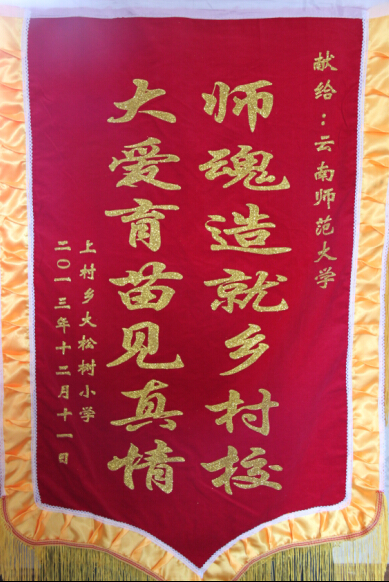 献给：云南师范大学
师魂造就乡村校
大爱育苗见真情
上村乡大松树小学
二〇一三年十二月十一日